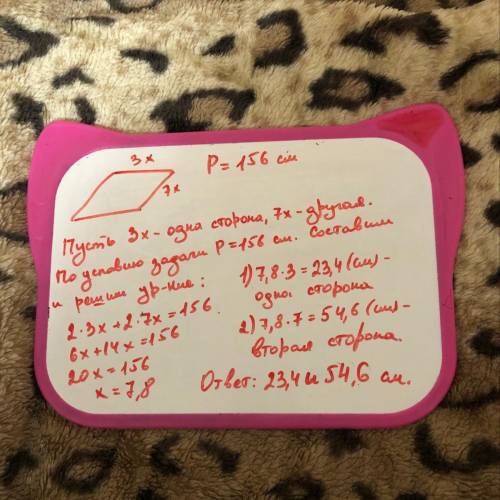 3x
P = 156 см
7x
Пусть 3x - одна сторона, 7x - другая.
По условию задачи P = 156 см. Составим
и решим ур-ние:
2·3x + 2·7x = 156
6x + 14x = 156
20x = 156
x = 7,8
1) 7,8·3 = 23,4 (см) -
одна сторона
2) 7,8·7 = 54,6 (см) -
вторая сторона.
Ответ: 23,4 и 54,6 см.